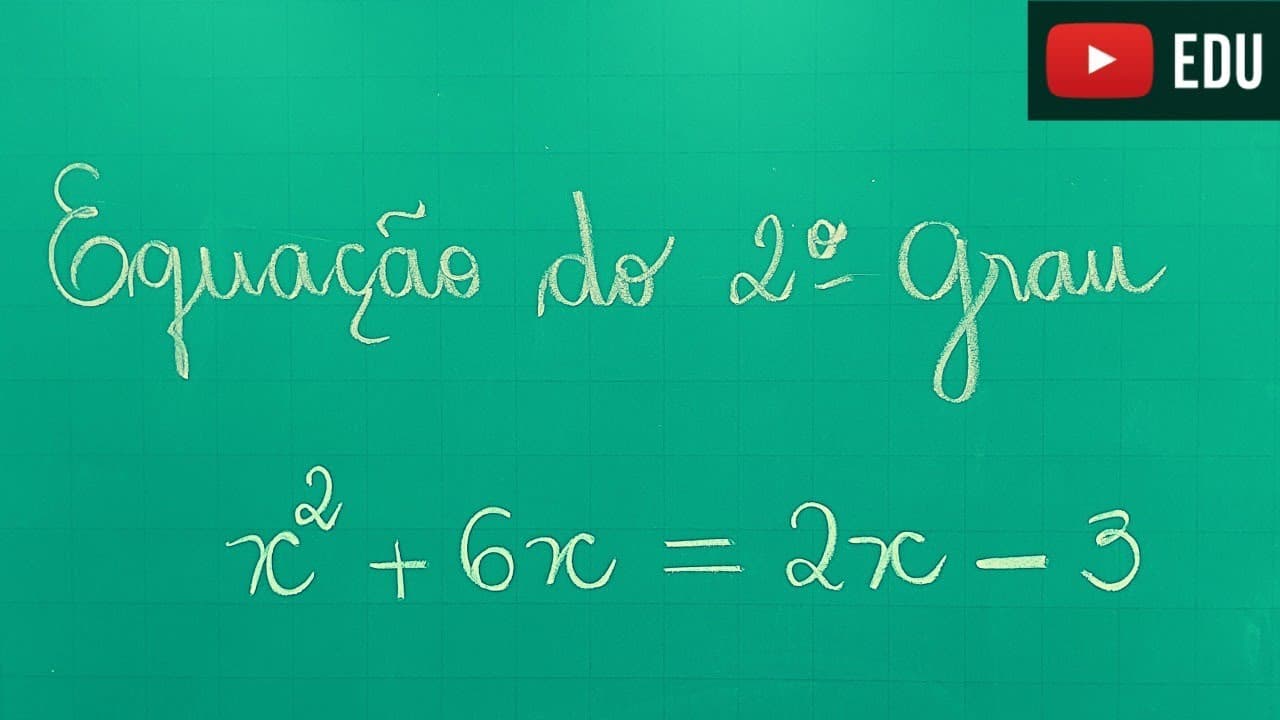 EDU
Equação do 2º Grau
x² + 6x = 2x - 3